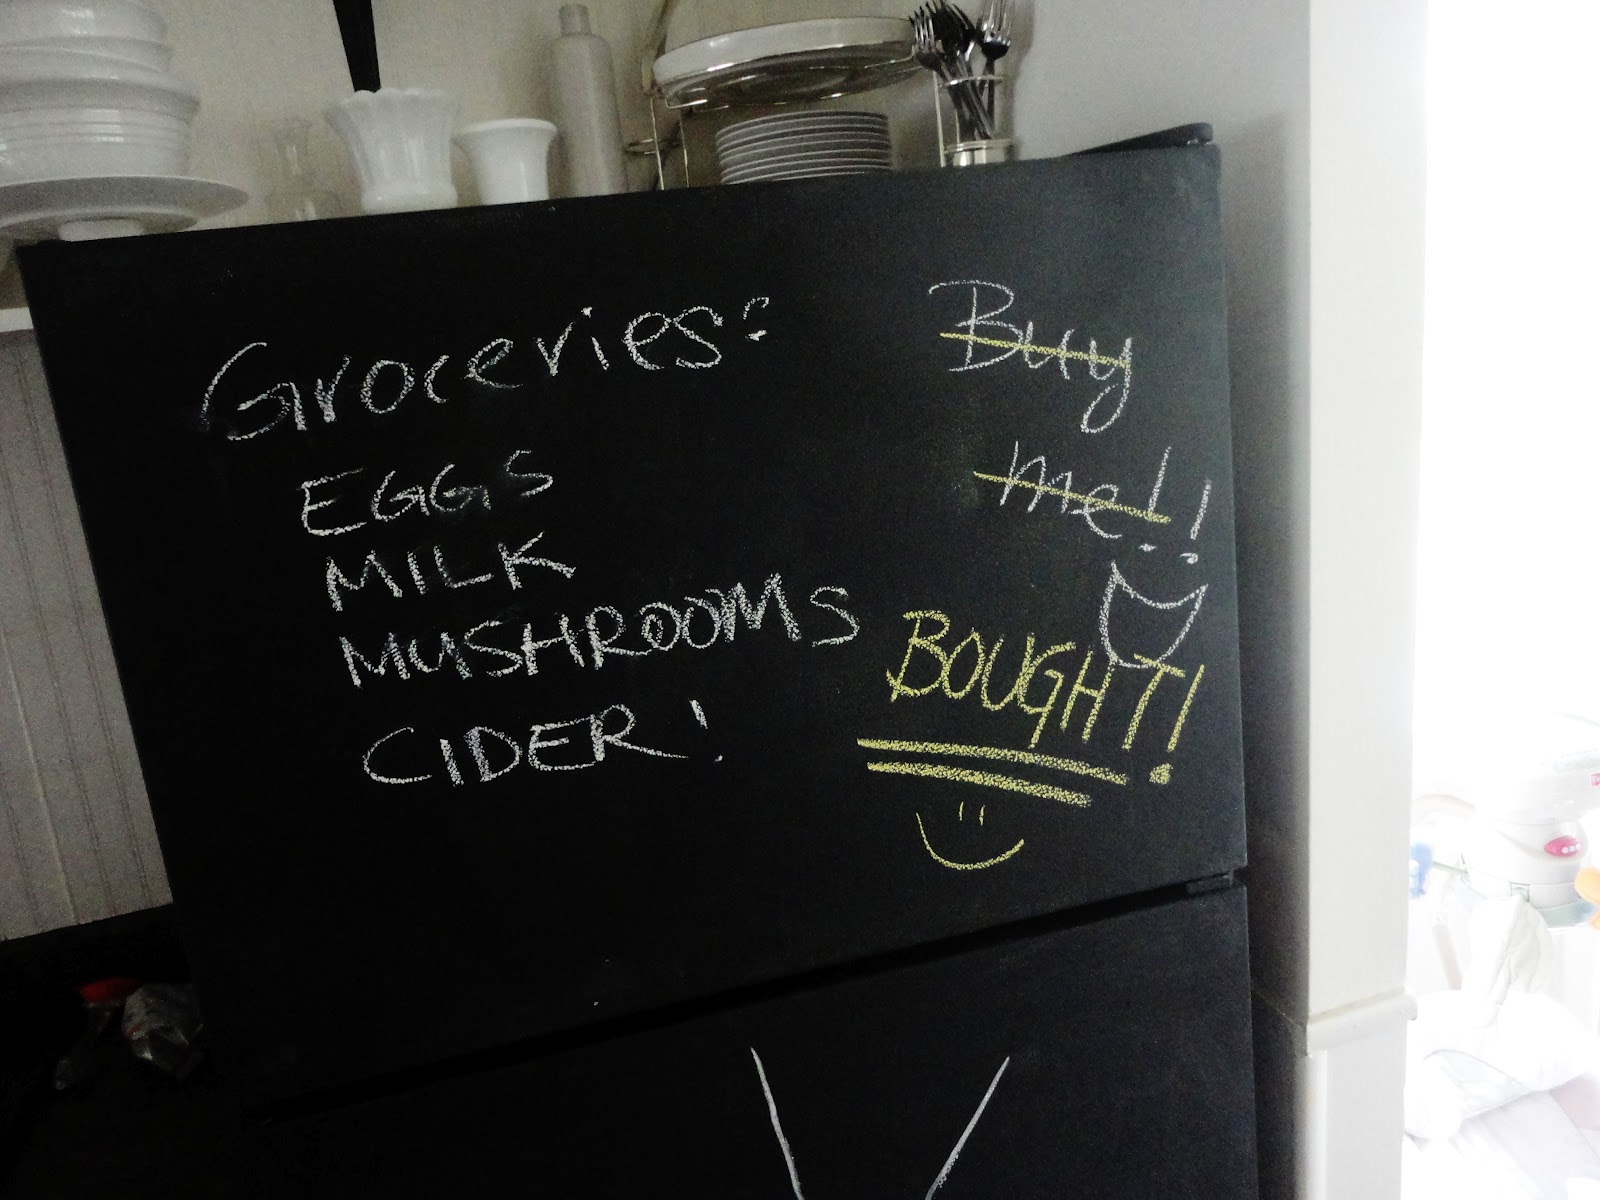 Groceries:
EGGS
MILK
MUSHROOMS
CIDER!
Buy
me!!
BOUGHT!